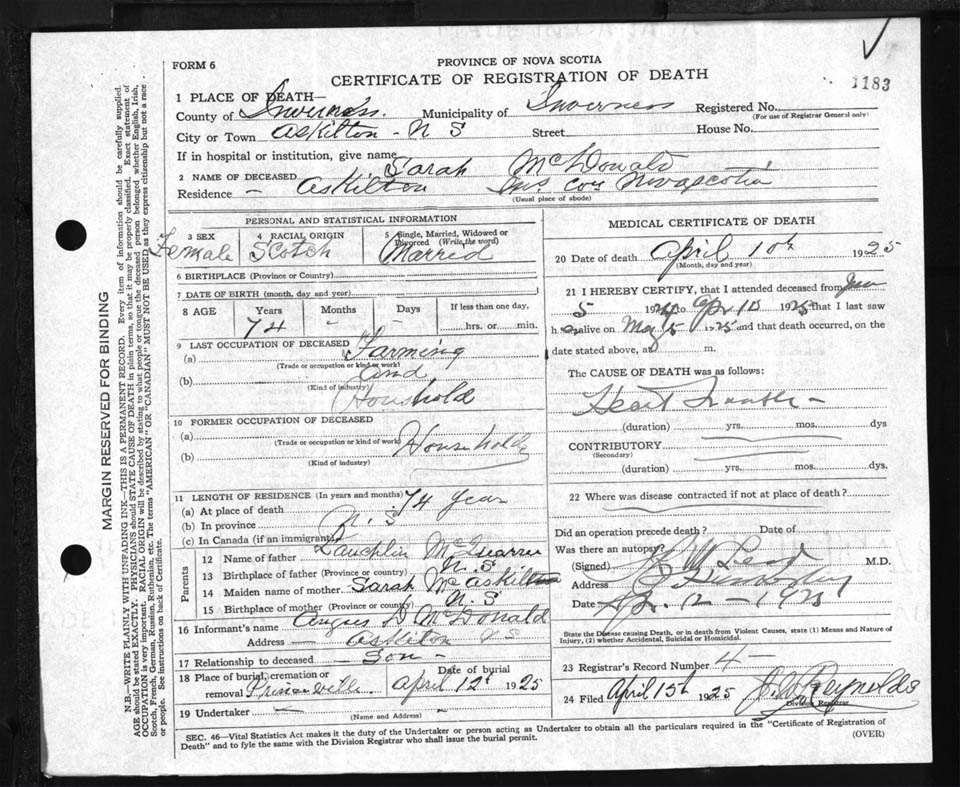 FORM 6
PROVINCE OF NOVA SCOTIA
CERTIFICATE OF REGISTRATION OF DEATH
1183
1 PLACE OF DEATH—
County of Inverness. Municipality of Inverness Registered No.
(For use of Registrar General only)
City or Town Askilton - N S Street House No.
If in hospital or institution, give name
2 NAME OF DECEASED Sarah McDonald
Residence - Askilton Inv Con Nova Scotia
(Usual place of abode)
PERSONAL AND STATISTICAL INFORMATION
3 SEX Female
4 RACIAL ORIGIN Scotch
5 Single, Married, Widowed or Divorced (Write the word) Married
6 BIRTHPLACE (Province or Country)
7 DATE OF BIRTH (month, day and year)
8 AGE Years 74 Months - Days - If less than one day, hrs. or min.
9 LAST OCCUPATION OF DECEASED
(a) Farming
(Trade or occupation or kind of work)
and
(b) Household
(Kind of industry)
10 FORMER OCCUPATION OF DECEASED
(a)
(Trade or occupation or kind of work)
(b) Household
(Kind of industry)
11 LENGTH OF RESIDENCE (In years and months)
(a) At place of death 74 year
(b) In province N. S
(c) In Canada (if an immigrant)
Parents
12 Name of father Lauchlin
13 Birthplace of father (Province or country) N. S
14 Maiden name of mother Sarah McAskill
15 Birthplace of mother (Province or country) N. S
16 Informant's name Angus D McDonald
Address - Askilton N S
17 Relationship to deceased - Son -
18 Place of burial, cremation or removal Princeville. Date of burial April 12th 1925
19 Undertaker
(Name and Address)
MEDICAL CERTIFICATE OF DEATH
20 Date of death April 10th 1925
(Month, day and year)
21 I HEREBY CERTIFY, that I attended deceased from
5 192 Apr 10 1925 that I last saw
h alive on 192 and that death occurred, on the
date stated above, at m.
The CAUSE OF DEATH was as follows:
Heart Trouble -
(duration) yrs. mos. dys
CONTRIBUTORY
(Secondary)
(duration) yrs. mos. dys.
22 Where was disease contracted if not at place of death?
Did an operation precede death? Date of
Was there an autopsy?
(Signed) M.D.
Address
Date
State the Disease causing Death, or in death from Violent Causes, state (1) Means and Nature of
Injury, (2) whether Accidental, Suicidal or Homicidal.
23 Registrar's Record Number 4 -
24 Filed April 15th 1925 Reynolds
Division Registrar
SEC. 46—Vital Statistics Act makes it the duty of the Undertaker or person acting as Undertaker to obtain all the particulars required in the "Certificate of Registration of
Death" and to fyle the same with the Division Registrar who shall issue the burial permit.
(OVER)
MARGIN RESERVED FOR BINDING
N.B.—WRITE PLAINLY WITH UNFADING INK—THIS IS A PERMANENT RECORD. Every item of information should be carefully supplied.
AGE should be stated EXACTLY. PHYSICIANS should STATE CAUSE OF DEATH in plain terms, so that it may be properly classified. Exact statement of
OCCUPATION is very important. RACIAL ORIGIN will be described by stating to what people or tongue the deceased person belonged whether English, Irish,
Scotch, French, German, Russian, Ruthenian, etc. The terms "AMERICAN" OR "CANADIAN" MUST NOT BE USED as they express citizenship but not a race
or people. See instructions on back of Certificate.